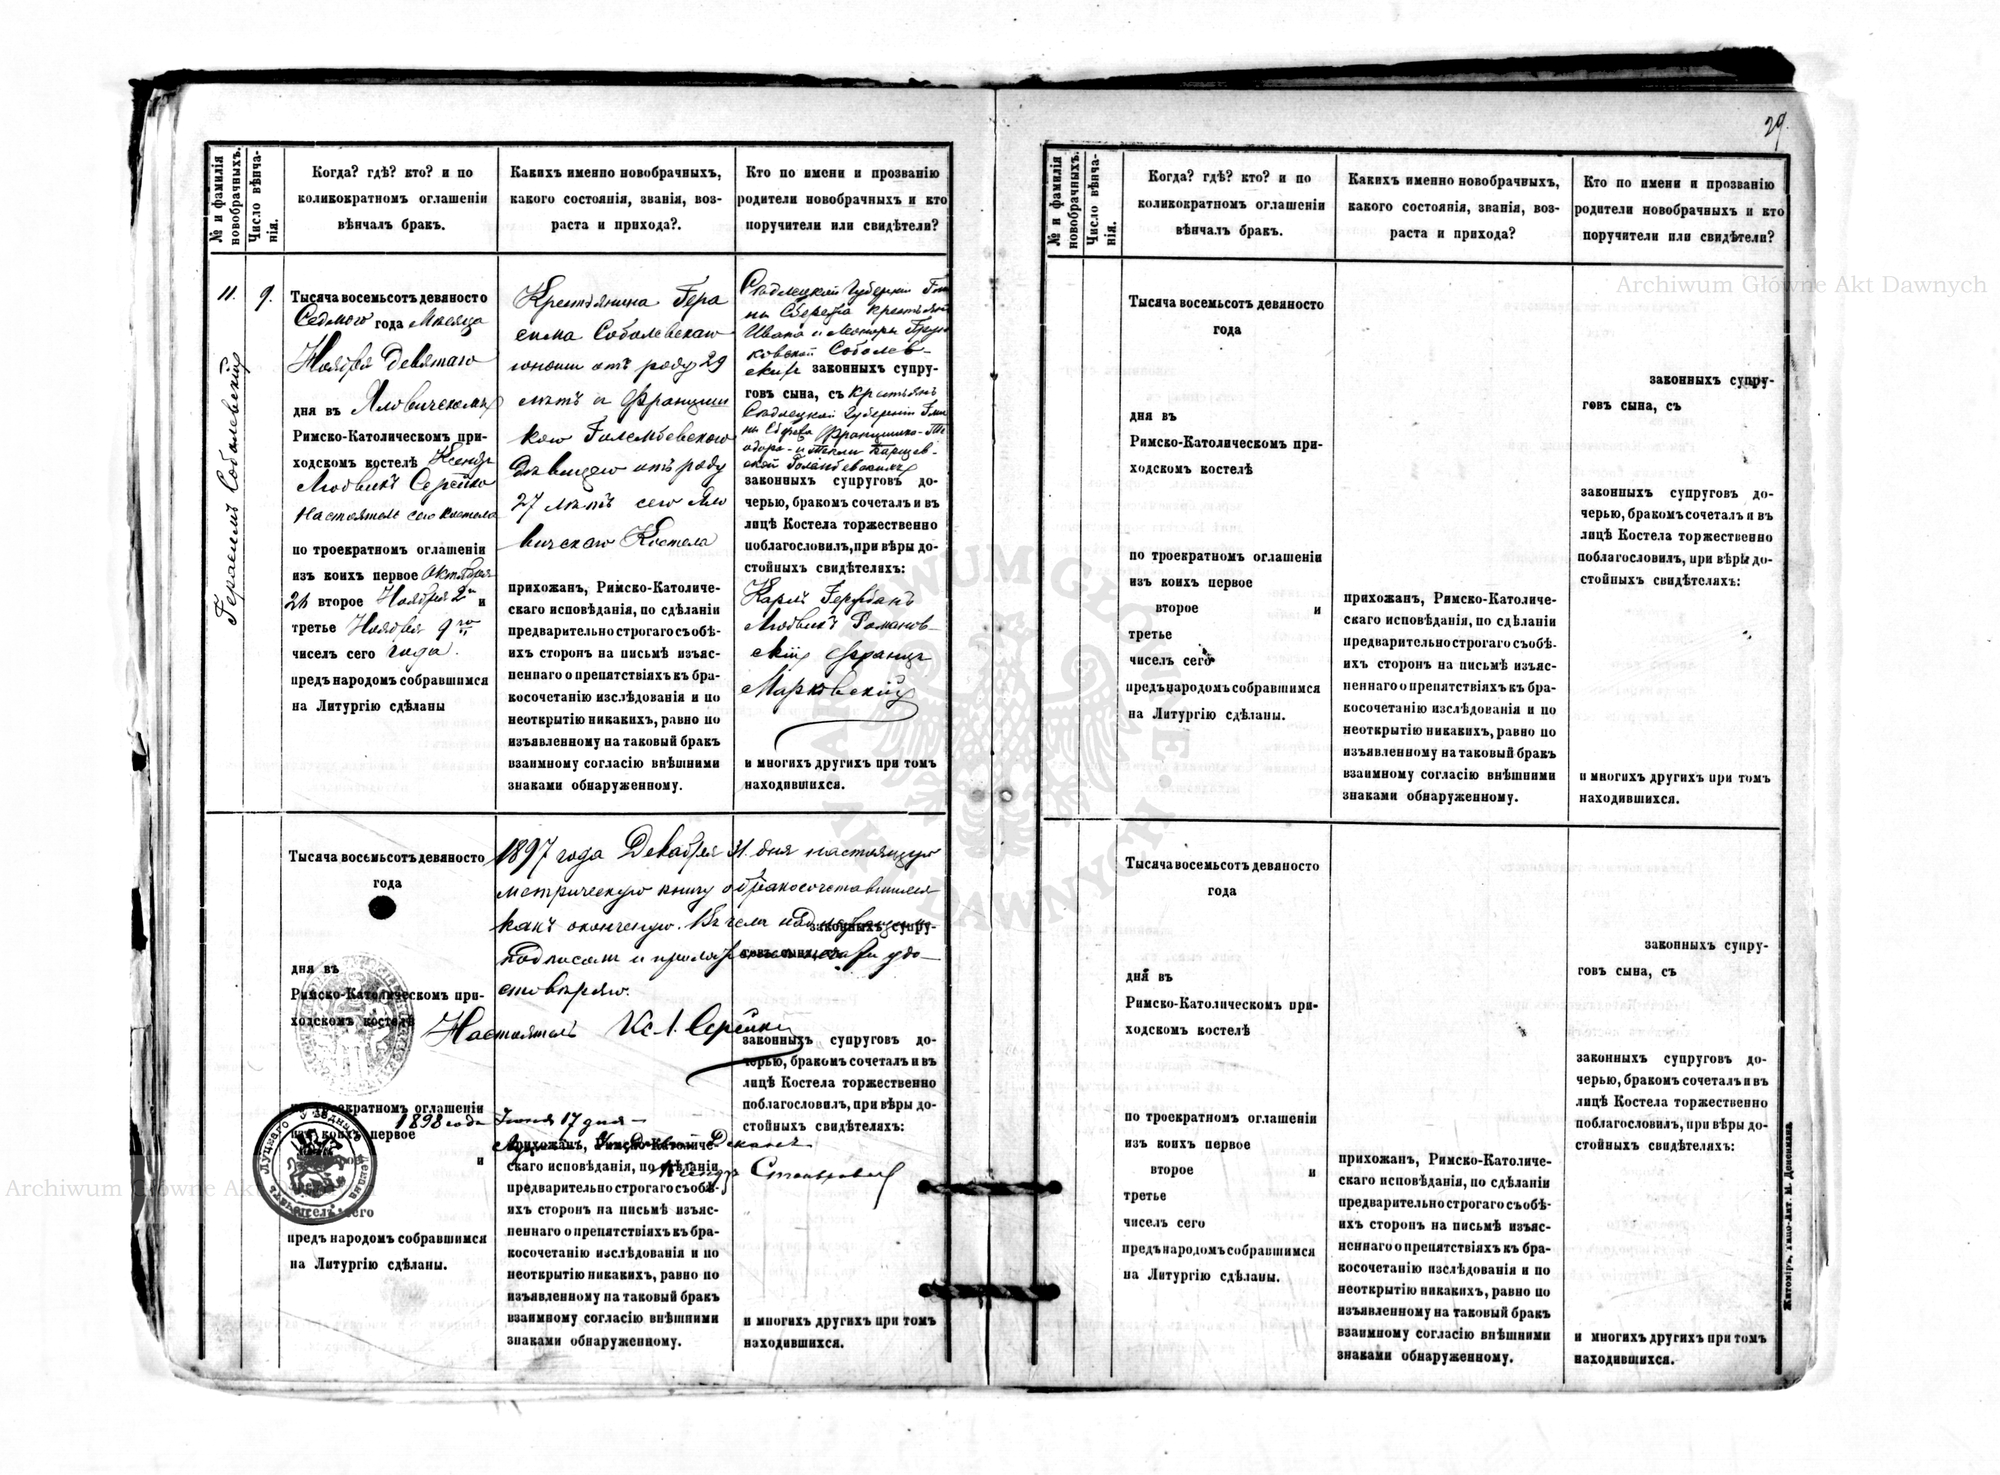 29.
№ и фамилія новобрачныхъ.
Число вѣнчанія.
Когда? гдѣ? кто? и по
коликократномъ оглашеніи
вѣнчалъ бракъ.
Какихъ именно новобрачныхъ,
какого состоянія, званія, воз-
раста и прихода?.
Кто по имени и прозванію
родители новобрачныхъ и кто
поручители или свидѣтели?
11.
9.
Герасимъ Соболевскій
Тысяча восемьсотъ девяносто
Седмого года Мѣсяца
Ноября Девятаго
дня въ Яловичскомъ
Римско-Католическомъ при-
ходскомъ костелѣ Ксендз
Людвикъ Серейко
Настоятель сего костела
по троекратномъ оглашеніи
изъ коихъ первое Октября
26 второе Ноября 2го и
третье Ноября 9го
чиселъ сего года.
предъ народомъ собравшимся
на Литургію сдѣланы
Крестьянина Гера
сима Соболевскаго
юношу отъ роду 29
лѣтъ и Франциш
кою Голембевскою
Дѣвицею отъ роду
27 лѣтъ сего Яло
вичскаго Костела
прихожан, Римско-Католиче-
скаго исповѣданія, по сдѣланіи
предварительно строгаго съ обѣ-
ихъ сторонъ на письмѣ изъяс-
неннаго о препятствіяхъ къ бра-
косочетанію изслѣдованія и по
неоткрытію никакихъ, равно по
изъявленному на таковый бракъ
взаимному согласію внѣшними
знаками обнаруженному.
Сѣдлецкой Губерніи Гми
ны Сбереже крестьянъ
Ивана и
ковской Соболев-
скихъ законныхъ супру-
говъ сына, съ крестьянъ
Сѣдлецкой Губерніи Гми
ны Сбереже Францишко-Те
одора и Теклы
ской Голембевскихъ
законныхъ супруговъ до-
черью, бракомъ сочеталъ и въ
лицѣ Костела торжественно
поблагословилъ, при вѣры до-
стойныхъ свидѣтеляхъ:
Карлъ
Людвикъ Романов-
скій Францъ
Марковскій
и многихъ другихъ при томъ
находившихся.
Тысяча восемьсотъ девяносто
года
дня въ
Римско-Католическомъ при-
ходскомъ костелѣ
по троекратномъ оглашеніи
изъ коихъ первое
и
чиселъ сего
предъ народомъ собравшимся
на Литургію сдѣланы.
1897 года Декабря 31. дня настоящую
метрическую книгу о бракосочетавшихся
какъ оконченную. Въ чемъ
подписомъ и удо-
стовѣряю.
Настоятель Кс Л. Серейко
1898 года Іюня 17 дня
Деканъ
Ксендз
законныхъ супру-
говъ сына, съ
законныхъ супруговъ до-
черью, бракомъ сочеталъ и въ
лицѣ Костела торжественно
поблагословилъ, при вѣры до-
стойныхъ свидѣтеляхъ:
прихожан, Римско-Католиче-
скаго исповѣданія, по сдѣланіи
предварительно строгаго съ обѣ-
ихъ сторонъ на письмѣ изъяс-
неннаго о препятствіяхъ къ бра-
косочетанію изслѣдованія и по
неоткрытію никакихъ, равно по
изъявленному на таковый бракъ
взаимному согласію внѣшними
знаками обнаруженному.
и многихъ другихъ при томъ
находившихся.
№ и фамилія новобрачныхъ.
Число вѣнчанія.
Когда? гдѣ? кто? и по
коликократномъ оглашеніи
вѣнчалъ бракъ.
Какихъ именно новобрачныхъ,
какого состоянія, званія, воз-
раста и прихода?
Кто по имени и прозванію
родители новобрачныхъ и кто
поручители или свидѣтели?
Тысяча восемьсотъ девяносто
года
дня въ
Римско-Католическомъ при-
ходскомъ костелѣ
по троекратномъ оглашеніи
изъ коихъ первое
второе и
третье
чиселъ сего
предъ народомъ собравшимся
на Литургію сдѣланы.
прихожан, Римско-Католиче-
скаго исповѣданія, по сдѣланіи
предварительно строгаго съ обѣ-
ихъ сторонъ на письмѣ изъяс-
неннаго о препятствіяхъ къ бра-
косочетанію изслѣдованія и по
неоткрытію никакихъ, равно по
изъявленному на таковый бракъ
взаимному согласію внѣшними
знаками обнаруженному.
законныхъ супру-
говъ сына, съ
законныхъ супруговъ до-
черью, бракомъ сочеталъ и въ
лицѣ Костела торжественно
поблагословилъ, при вѣры до-
стойныхъ свидѣтеляхъ:
и многихъ другихъ при томъ
находившихся.
Тысяча восемьсотъ девяносто
года
дня въ
Римско-Католическомъ при-
ходскомъ костелѣ
по троекратномъ оглашеніи
изъ коихъ первое
второе и
третье
чиселъ сего
предъ народомъ собравшимся
на Литургію сдѣланы.
прихожан, Римско-Католиче-
скаго исповѣданія, по сдѣланіи
предварительно строгаго съ обѣ-
ихъ сторонъ на письмѣ изъяс-
неннаго о препятствіяхъ къ бра-
косочетанію изслѣдованія и по
неоткрытію никакихъ, равно по
изъявленному на таковый бракъ
взаимному согласію внѣшними
знаками обнаруженному.
законныхъ супру-
говъ сына, съ
законныхъ супруговъ до-
черью, бракомъ сочеталъ и въ
лицѣ Костела торжественно
поблагословилъ, при вѣры до-
стойныхъ свидѣтеляхъ:
и многихъ другихъ при томъ
находившихся.
Житоміръ, Типо-Лит. М. Дененмана.
Archiwum Główne Akt Dawnych
Archiwum Główne Akt Dawnych
ARCHIWUM GŁÓWNE AKT DAWNYCH